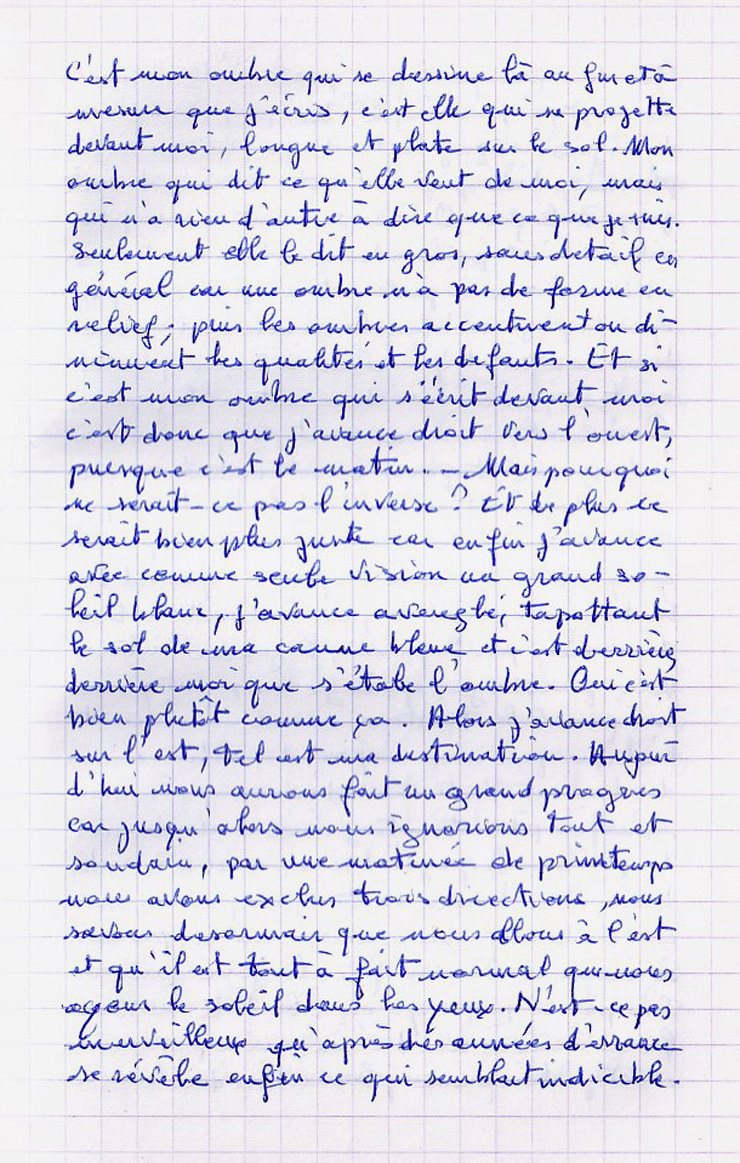 C'est mon ombre qui se dessine là au fur et à
mesure que j'écris, c'est elle qui se projette
devant moi, longue et plate sur le sol. Mon
ombre qui dit ce qu'elle veut de moi, mais
qui n'a rien d'autre à dire que ce que je suis.
Seulement elle le dit en gros, sans detail en
général car une ombre n'a pas de forme en
relief; puis les ombres accentuent ou di-
minuent les qualités et les defauts. Et si
c'est mon ombre qui s'écrit devant moi
c'est donc que j'avance droit vers l'ouest,
puisque c'est le matin. - Mais pourquoi
ne serait-ce pas l'inverse? Et de plus ce
serait bien plus juste car enfin j'avance
avec comme seule vision un grand so-
leil blanc, j'avance aveuglé, tapottant
le sol de ma canne bleue et c'est derrière,
derrière moi que s'étale l'ombre. Oui c'est
bien plutôt comme ça. Alors j'avance droit
sur l'est, tel est ma destination. Aujour
d'hui nous aurons fait un grand progrès
car jusqu'alors nous ignorions tout et
soudain, par une matinée de printemps
nous avons exclus trois directions, nous
savons desormais que nous allons à l'est
et qu'il est tout à fait normal que nous
ayons le soleil dans les yeux. N'est-ce pas
merveilleux qu'après des années d'errance
se révèle enfin ce qui semblait indicible.